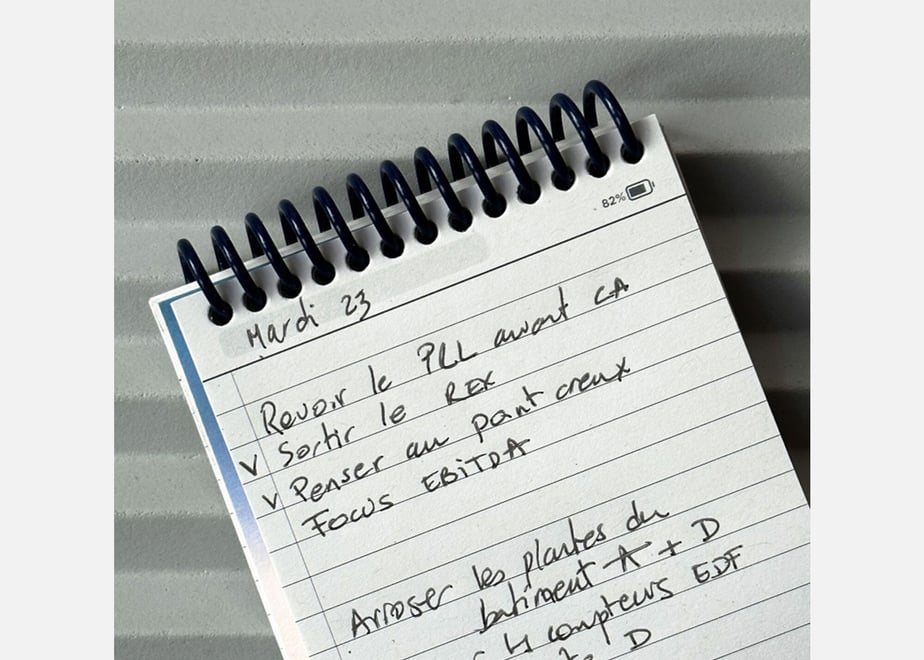 82%
Mardi 23
Revoir le PLL avant CA
v Sortir le REX
v Penser au point creux
Focus EBITDA
Arroser les plantes du
bâtiment A + D
4 compteurs EDF
D